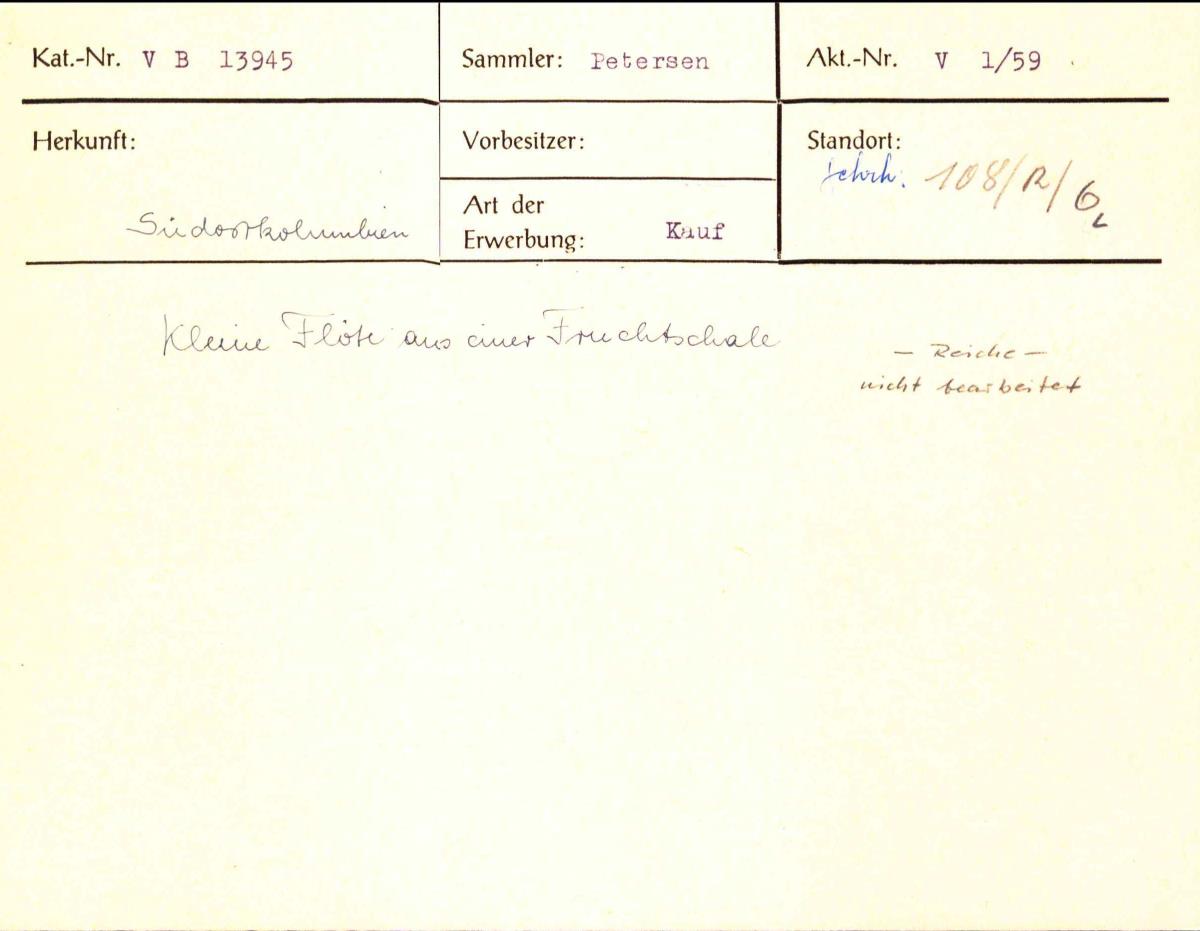 Kat.-Nr. V B 13945
Sammler: Petersen
Akt.-Nr. V 1/59
Herkunft:
Südostkolumbien
Vorbesitzer:
Art der
Erwerbung: Kauf
Standort:
108/R/6
Kleine Flöte aus einer Fruchtschale
— Reiche —
nicht bearbeitet